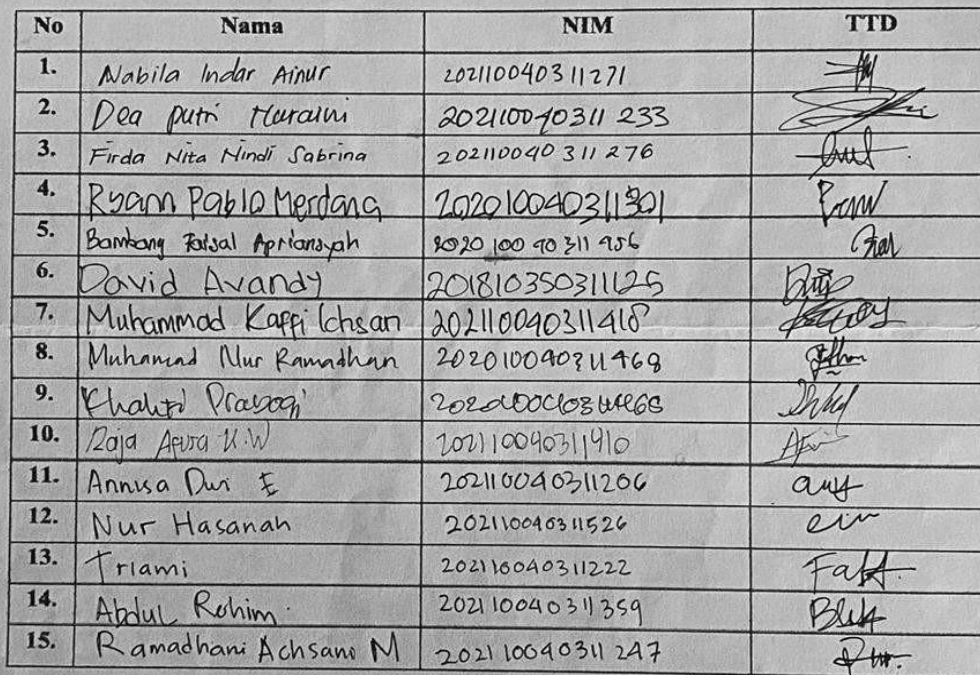 No Nama NIM TTD
1. Nabila Indar Ainur 202110040311271
2. Dea putri Nuraini 202110040311233
3. Firda Nita Nindi Sabrina 202110040311276
4. Ryann Pablo Merdana 202010040311301
5. Bambang Faisal Apriansyah 202010040311456
6. David Avandy 201810350311125
7. Muhammad Kaffi Ichsan 202110040311418
8. Muhamad Nur Ramadhan 202010040311468
9. Prayogi
10. Raja K.W 202110040311410
11. Annisa Dwi E 202110040311206
12. Nur Hasanah 202110040311526
13. Triami 202110040311222
14. Abdul Rohim. 202110040311359
15. Ramadhani Achsani M 202110040311247